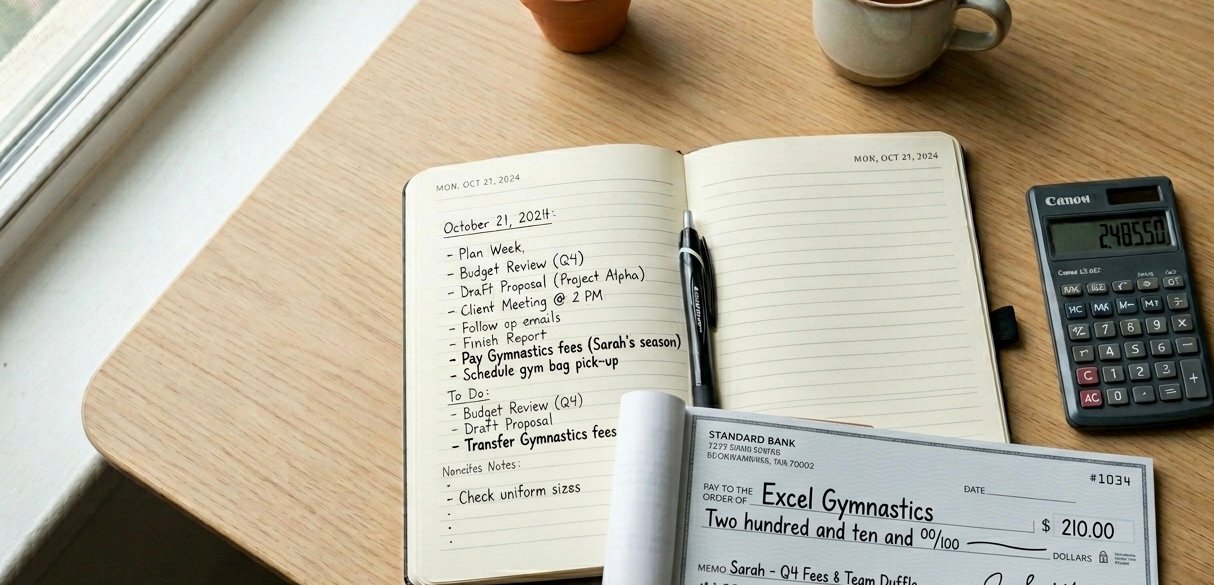 MON. OCT 21, 2024
October 21, 2024:
- Plan Week,
- Budget Review (Q4)
- Draft Proposal (Project Alpha)
- Client Meeting @ 2 PM
- Follow op emails
- Finish Report
- Pay Gymnastics fees (Sarah's season)
- Schedule gym bag pick-up
To Do:
- Budget Review (Q4)
- Draft Proposal
- Transfer Gymnastics fees
Notes:
- Check uniform sizes
MON, OCT 21, 2024
Canon
248550
C 1 2 3
AC 0
STANDARD BANK
#1034
DATE
PAY TO THE
ORDER OF Excel Gymnastics
$ 210.00
Two hundred and ten and 00/100
DOLLARS
MEMO Sarah - Q4 Fees & Team Duffle